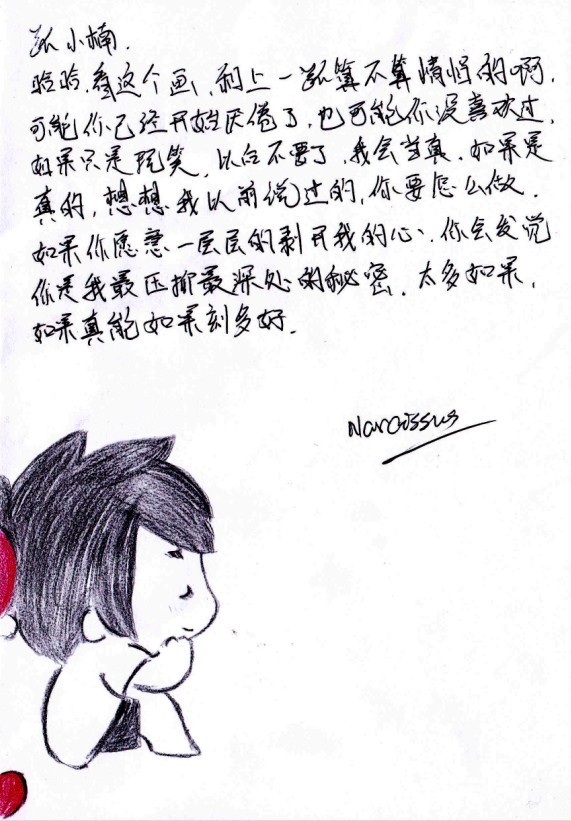 张小楠.
哈哈,看这个画,和上一张算不算情侣的啊.
可能你已经开始厌倦了,也可能你没喜欢过,
如果只是玩笑,以后不要了,我会当真.如果是
真的,想想我以前说过的,你要怎么做.
如果你愿意一层层的剥开我的心,你会发觉
你是我最压抑最深处的秘密.太多如果,
如果真能如果多好.
Narcissus